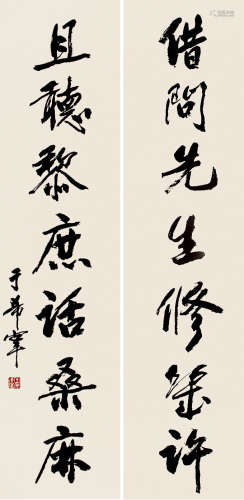 借问先生修几许
且聽黎庶話桑麻
于希寧